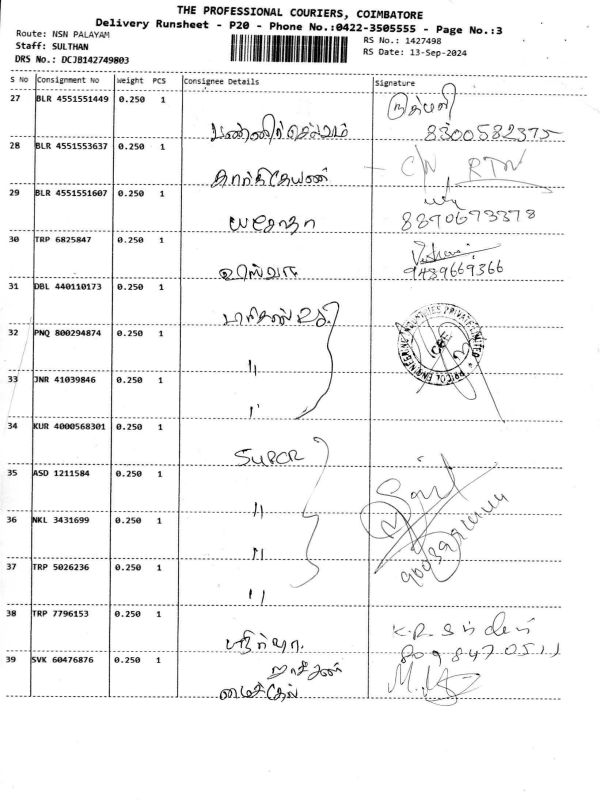 THE PROFESSIONAL COURIERS, COIMBATORE
Delivery Runsheet - P20 - Phone No.:0422-3505555 - Page No.:3
Route: NSN PALAYAM
RS No.: 1427498
Staff: SULTHAN
RS Date: 13-Sep-2024
DRS No.: DCJB142749803
S No Consignment No Weight PCS Consignee Details Signature
27 BLR 4551551449 0.250 1
பன்னீர்செல்வம் 8300582375
28 BLR 4551553637 0.250 1
கார்த்திகேயன் C/N RTN
29 BLR 4551551607 0.250 1
யசோதா 8890673378
30 TRP 6825847 0.250 1
9489669366
31 DBL 440110173 0.250 1
32 PNQ 800294874 0.250 1
PRICOL ENGINEERING INDUSTRIES PRIVATE LIMITED
CBE
"
33 JNR 41039846 0.250 1
"
34 KUR 4000568301 0.250 1
SUPER
35 ASD 1211584 0.250 1
"
36 NKL 3431699 0.250 1
"
37 TRP 5026236 0.250 1
"
38 TRP 7796153 0.250 1
K.R.
8098470511
39 SVK 60476876 0.250 1
மைக்கேல்